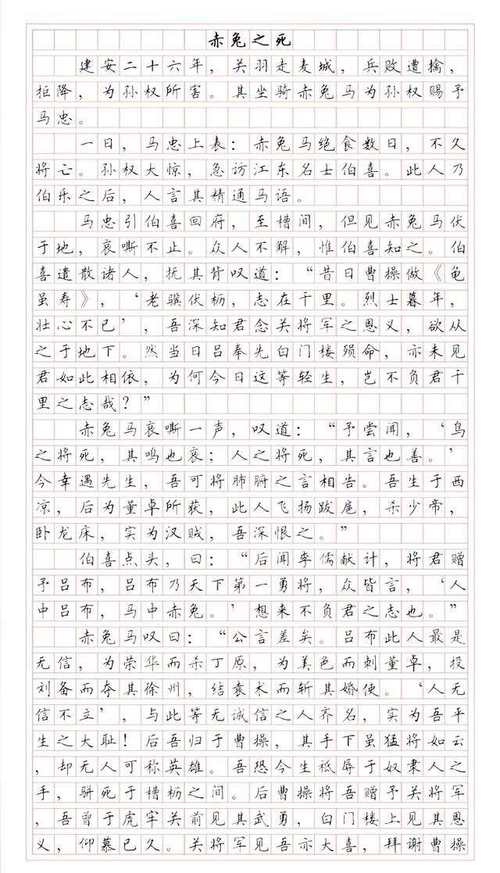 赤兔之死
建安二十六年，关羽走麦城，兵败遭擒，
拒降，为孙权所害。其坐骑赤兔马为孙权赐予
马忠。
一日，马忠上表：赤兔马绝食数日，不久
将亡。孙权大惊，急访江东名士伯喜。此人乃
伯乐之后，人言其精通马语。
马忠引伯喜回府，至槽间，但见赤兔马伏
于地，哀嘶不止。众人不解，惟伯喜知之。伯
喜遣散诸人，抚其背叹道：“昔日曹操做《龟
虽寿》，‘老骥伏枥，志在千里。烈士暮年，
壮心不已’，吾深知君念关将军之恩义，欲从
之于地下。然当日吕奉先白门楼殒命，亦未见
君如此相依，为何今日这等轻生，岂不负君千
里之志哉？”
赤兔马哀嘶一声，叹道：“予尝闻，‘鸟
之将死，其鸣也哀；人之将死，其言也善。’
今幸遇先生，吾可将肺腑之言相告。吾生于西
凉，后为董卓所获，此人飞扬跋扈，杀少帝，
卧龙床，实为汉贼，吾深恨之。”
伯喜点头，曰：“后闻李儒献计，将君赠
予吕布，吕布乃天下第一勇将，众皆言，‘人
中吕布，马中赤兔。’想来不负君之志也。”
赤兔马叹曰：“公言差矣。吕布此人最是
无信，为荣华而杀丁原，为美色而刺董卓，投
刘备而夺其徐州，结袁术而斩其婚使。‘人无
信不立’，与此等无诚信之人齐名，实为吾平
生之大耻！后吾归于曹操，其手下虽猛将如云
，却无人可称英雄。吾恐今生祗辱于奴隶人之
手，骈死于槽枥之间。后曹操将吾赠予关将军
，吾曾于虎牢关前见其武勇，白门楼上见其恩
义，仰慕已久。关将军见吾亦大喜，拜谢曹操